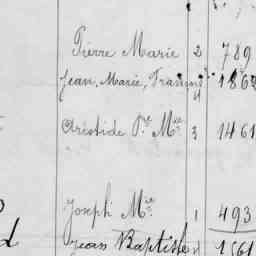 Pierre Marie 2 789
Jean, Marie, Francois 4 1862
Aristide P.re M.ie 3 1461
Joseph M.ie 1 493
Jean Baptiste